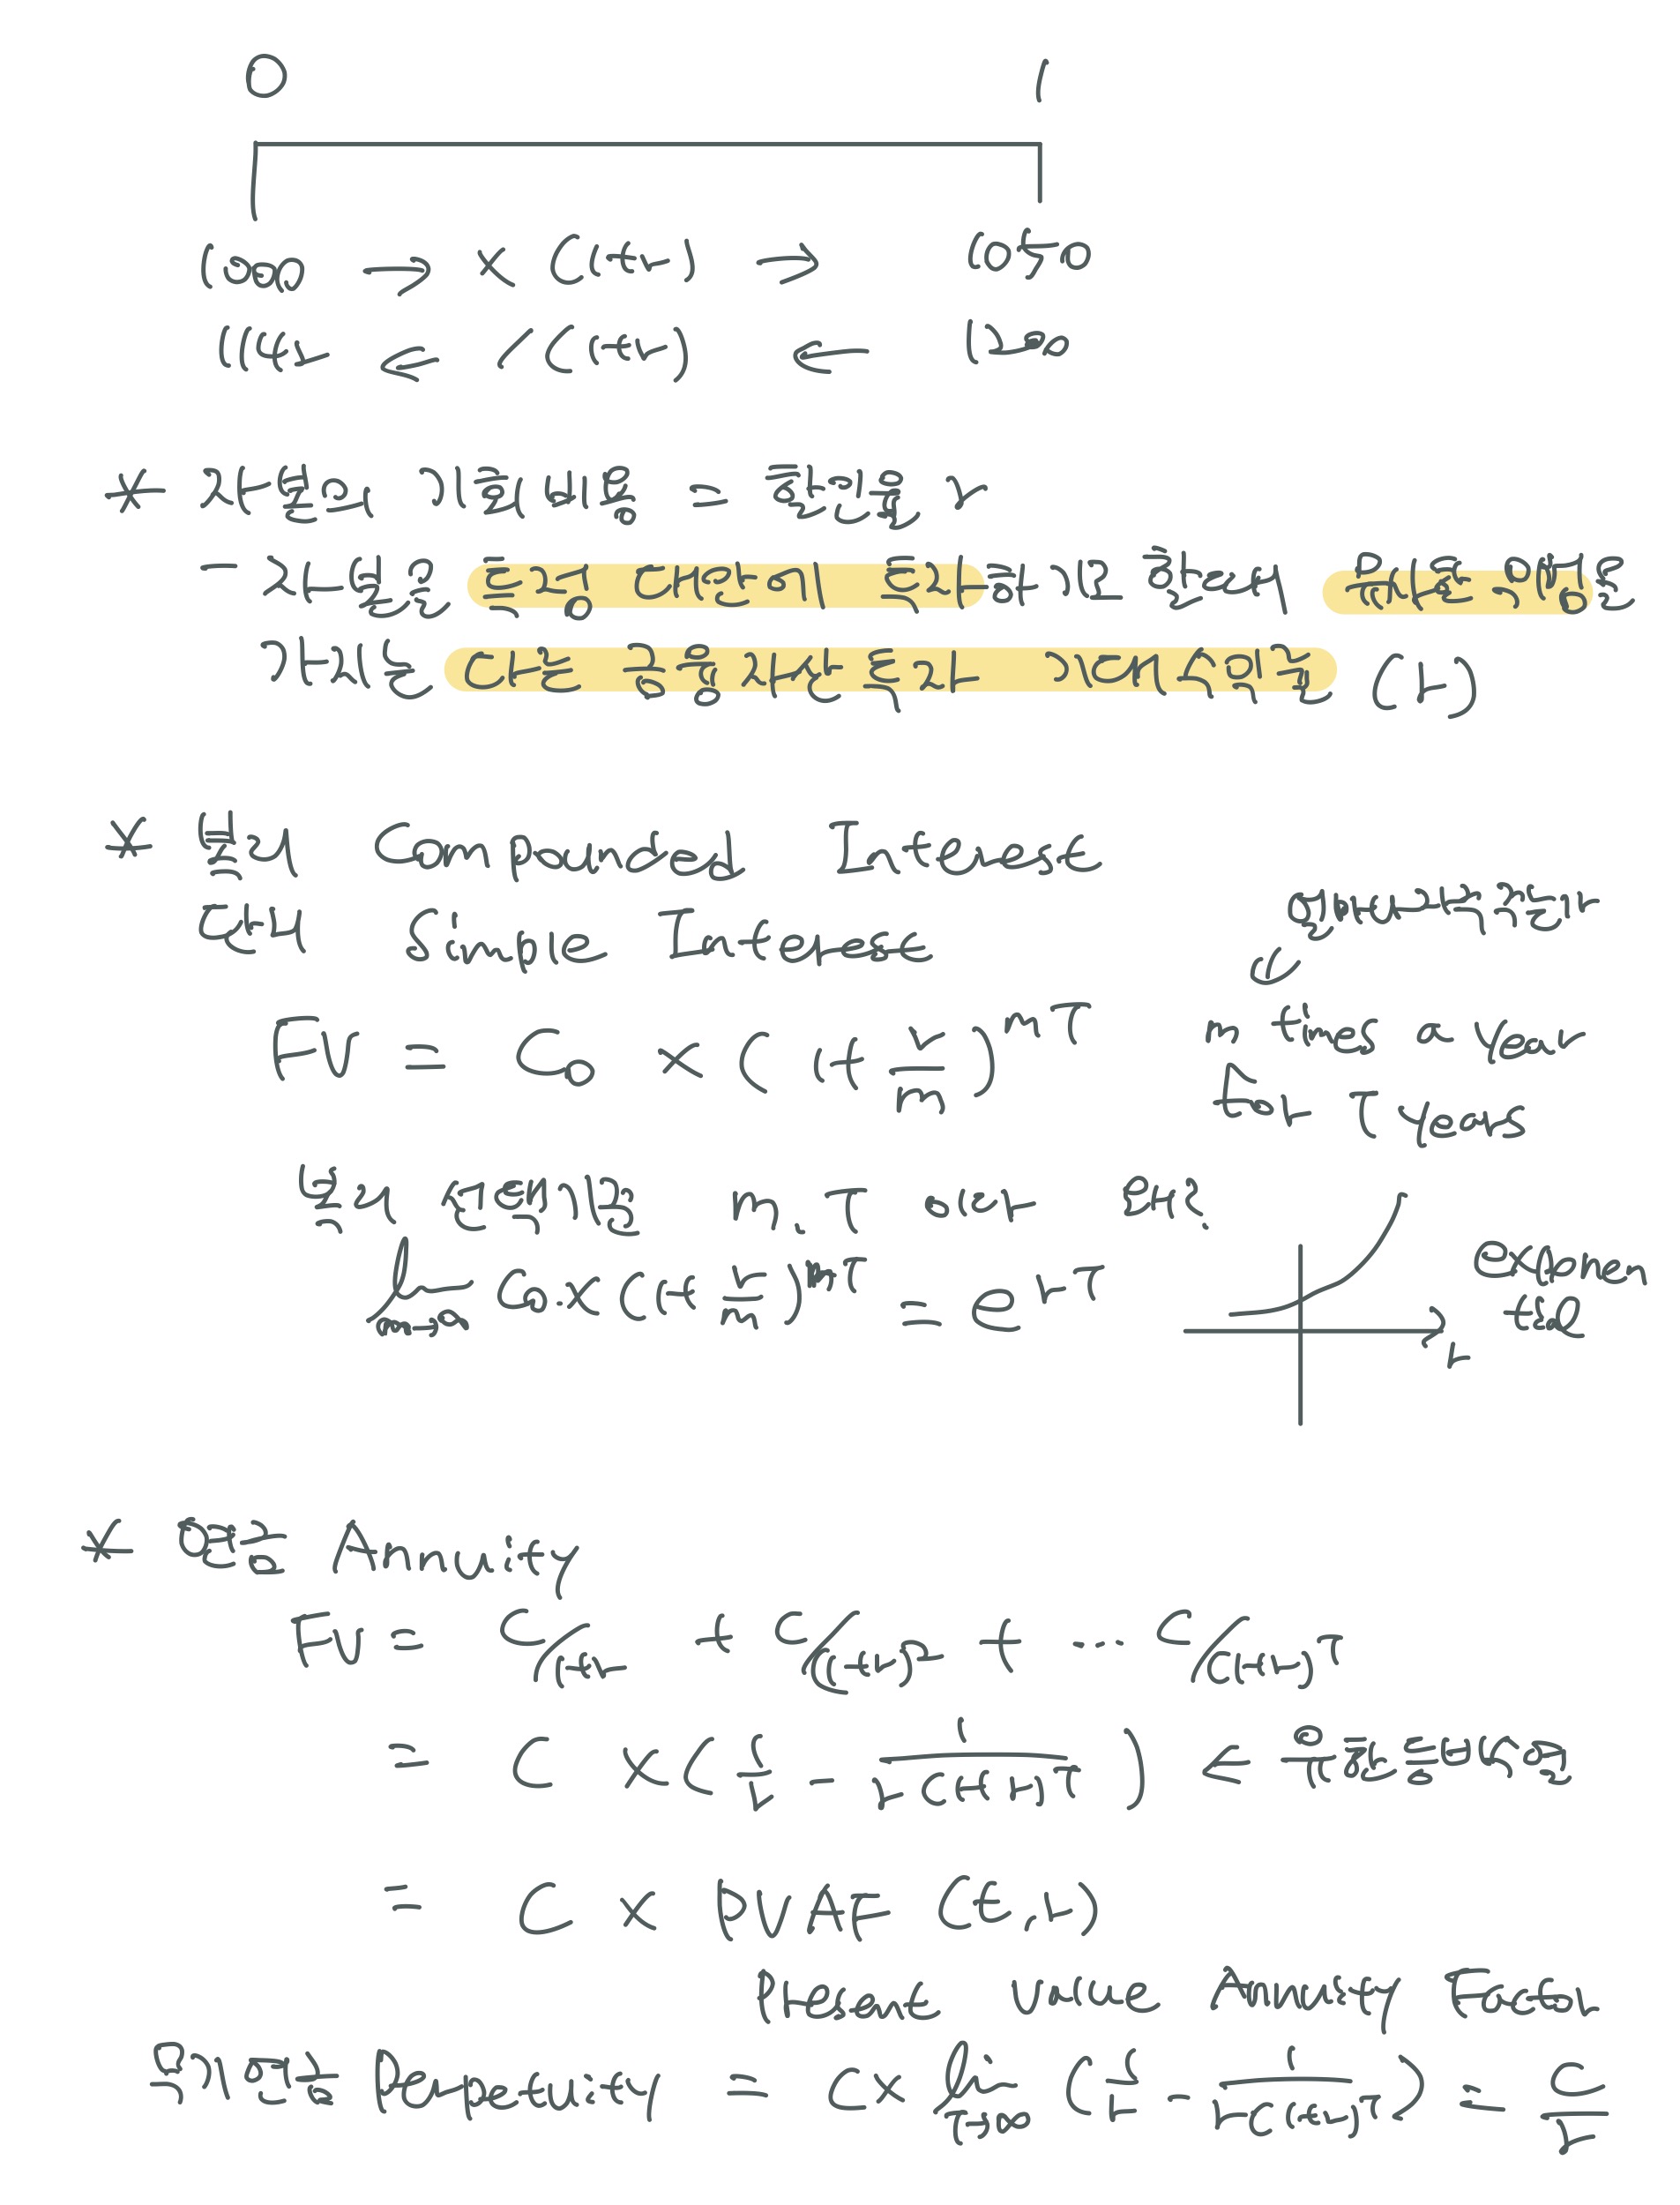 0 1
1000 → × (1+r) → 1050
1142 ← / (1+r) ← 1200
* 자본의 기회비용 = 할인율 r
- 자본을 특정 대안에 투자하고 함에서 똑같은 위험을
가지는 다른 금융자산 투자 기대수익률 (r)
* 복리 Compounded Interest
단리 Simple Interest
FV = C₀ × (1+r/m)^mT
연m번씩 투자
↓
m times a year
for T years
복리 연속적으로 m.T our 면?
lim m→∞ C₀ × (1+r/m)^mT = e^rT
exponen
tial
r
* 연금 Annuity
FV = C/1+r + C/(1+r)² + ... C/(1+r)^T
= C × (1/r - 1/r(1+r)^T) ← 유한등비수열
= C × PVAF (t,r)
Present Value Annuity Factor
무기연금 Perpetuity = C× lim T→∞ (1/r - 1/r(1+r)^T) = C/r